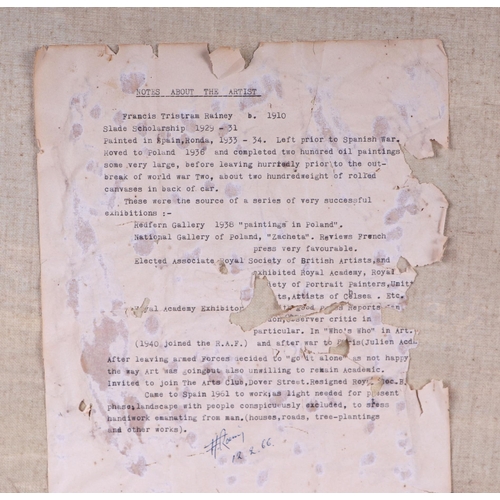 NOTES ABOUT THE ARTIST
Francis Tristram Rainey b. 1910
Slade Scholarship 1929 - 31
Painted in Spain,Ronda, 1933 - 34. Left prior to Spanish War.
Roved to Poland 1936 and completed two hundred oil paintings
some very large, before leaving hurriedly prior to the out-
break of world war Two, about two hundredweight of rolled
canvases in back of car.
These were the source of a series of very successful
exhibitions :-
Redfern Gallery 1938 "paintings in Poland".
National Gallery of Poland, "Zacheta". Reviews French
press very favourable.
Elected Associate Royal Society of British Artists,and
exhibited Royal Academy, Royal
Society of Portrait Painters,Unite
ts,Artists of Celsea . Etc.
Academy Exhibitor good Reports in
server critic in
particular. In "Who's Who" in Art.
(1940 joined the R.A.F.) and after war to Paris(Julien Acd
After leaving armed Forces decided to "go it alone" as not happy
the way Art was going,but also unwilling to remain Academic.
invited to join The Arts Club,Dover Street.Resigned Roy Soc.B
Came to Spain 1961 to work;as light needed for present
phase;landscape with people conspicuously excluded, to stress
handiwork emanating from man.(houses,roads, tree-plantings
and other works).
12.2.66